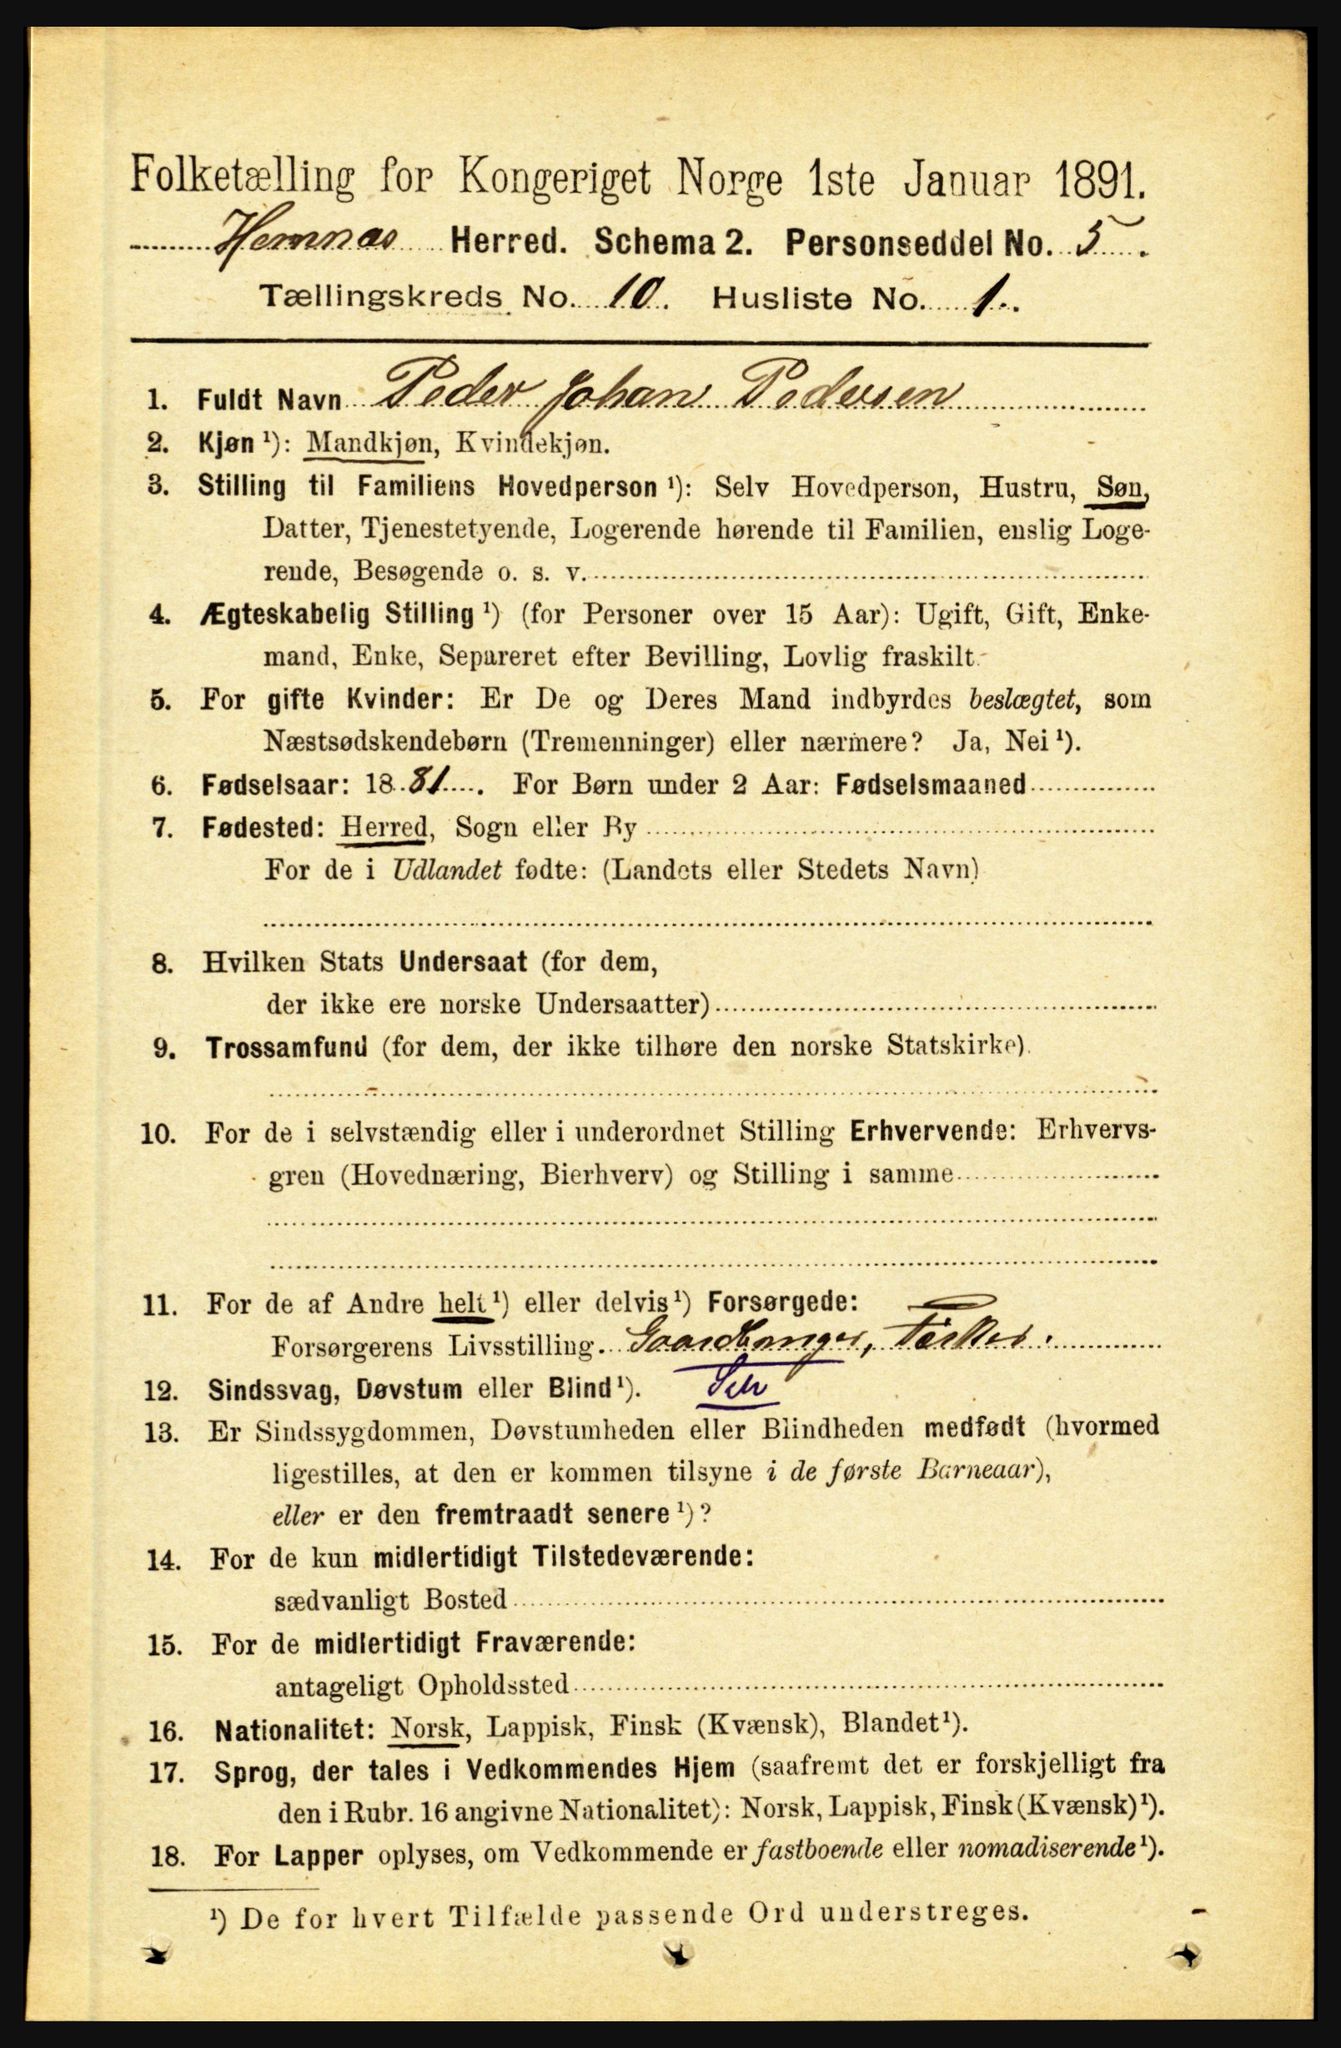 Folketælling for Kongeriget Norge 1ste Januar 1891.
Hemnæs Herred. Schema 2. Personseddel No. 5.
Tællingskreds No. 10. Husliste No. 1.
1. Fuldt Navn Peder Johan Pedersen
2. Kjøn ¹): Mandkjøn, Kvindekjøn.
3. Stilling til Familiens Hovedperson ¹): Selv Hovedperson, Hustru, Søn,
Datter, Tjenestetyende, Logerende hørende til Familien, enslig Loge-
rende, Besøgende o. s. v.
4. Ægteskabelig Stilling ¹) (for Personer over 15 Aar): Ugift, Gift, Enke-
mand, Enke, Separeret efter Bevilling, Lovlig fraskilt.
5. For gifte Kvinder: Er De og Deres Mand indbyrdes beslægtet, som
Næstsødskendebørn (Tremenninger) eller nærmere? Ja, Nei ¹).
6. Fødselsaar: 1881. For Børn under 2 Aar: Fødselsmaaned
7. Fødested: Herred, Sogn eller By
For de i Udlandet fødte: (Landets eller Stedets Navn)
8. Hvilken Stats Undersaat (for dem,
der ikke ere norske Undersaatter)
9. Trossamfund (for dem, der ikke tilhøre den norske Statskirke)
10. For de i selvstændig eller i underordnet Stilling Erhvervende: Erhvervs-
gren (Hovednæring, Bierhverv) og Stilling i samme
11. For de af Andre helt ¹) eller delvis ¹) Forsørgede:
Forsørgerens Livsstilling. Gaardbruger, Fisker.
12. Sindssvag, Døvstum eller Blind ¹). Selv
13. Er Sindssygdommen, Døvstumheden eller Blindheden medfødt (hvormed
ligestilles, at den er kommen tilsyne i de første Barneaar),
eller er den fremtraadt senere ¹)?
14. For de kun midlertidigt Tilstedeværende:
sædvanligt Bosted
15. For de midlertidigt Fraværende:
antageligt Opholdssted
16. Nationalitet: Norsk, Lappisk, Finsk (Kvænsk), Blandet ¹).
17. Sprog, der tales i Vedkommendes Hjem (saafremt det er forskjelligt fra
den i Rubr. 16 angivne Nationalitet): Norsk, Lappisk, Finsk (Kvænsk) ¹).
18. For Lapper oplyses, om Vedkommende er fastboende eller nomadiserende ¹).
¹) De for hvert Tilfælde passende Ord understreges.